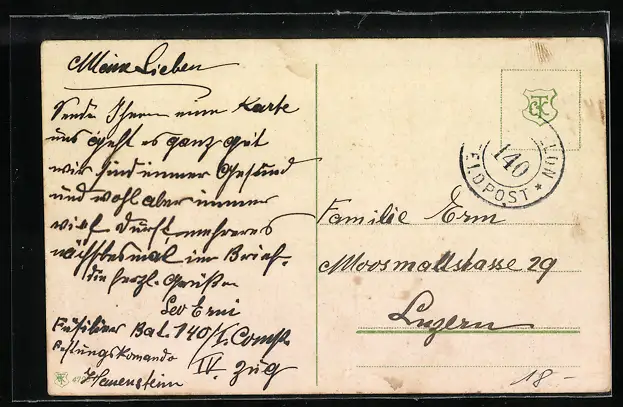 Meine Lieben
Sende Ihnen eine Karte
uns geht es ganz gut
wir sind immer Gesund
und wohl aber immer
viel Durst, mehreres
nächstesmal im Brief.
die herzl. Grüße
Leo Erni
Füsilier Bat. 140/I. Comp.
Festungskomando IV. Zug
Hauenstein
TCK
140
FELDPOST *
Familie Erni
Moosmattstrasse 29
Luzern
18-